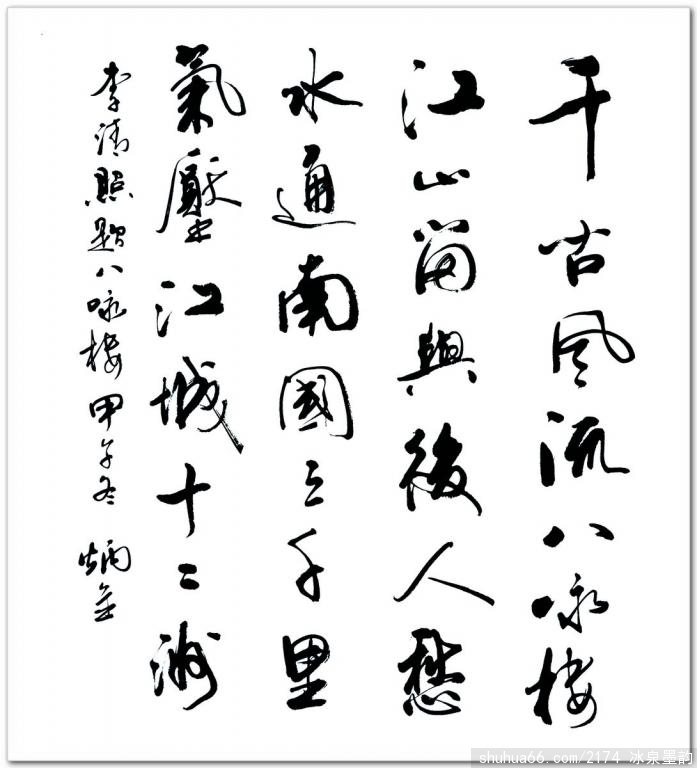 千古风流八咏楼
江山留與後人愁
水通南國三千里
氣壓江城十二洲
李清照题八咏楼 甲午冬 炳金
shuhua66.com/2174 冰泉墨韵